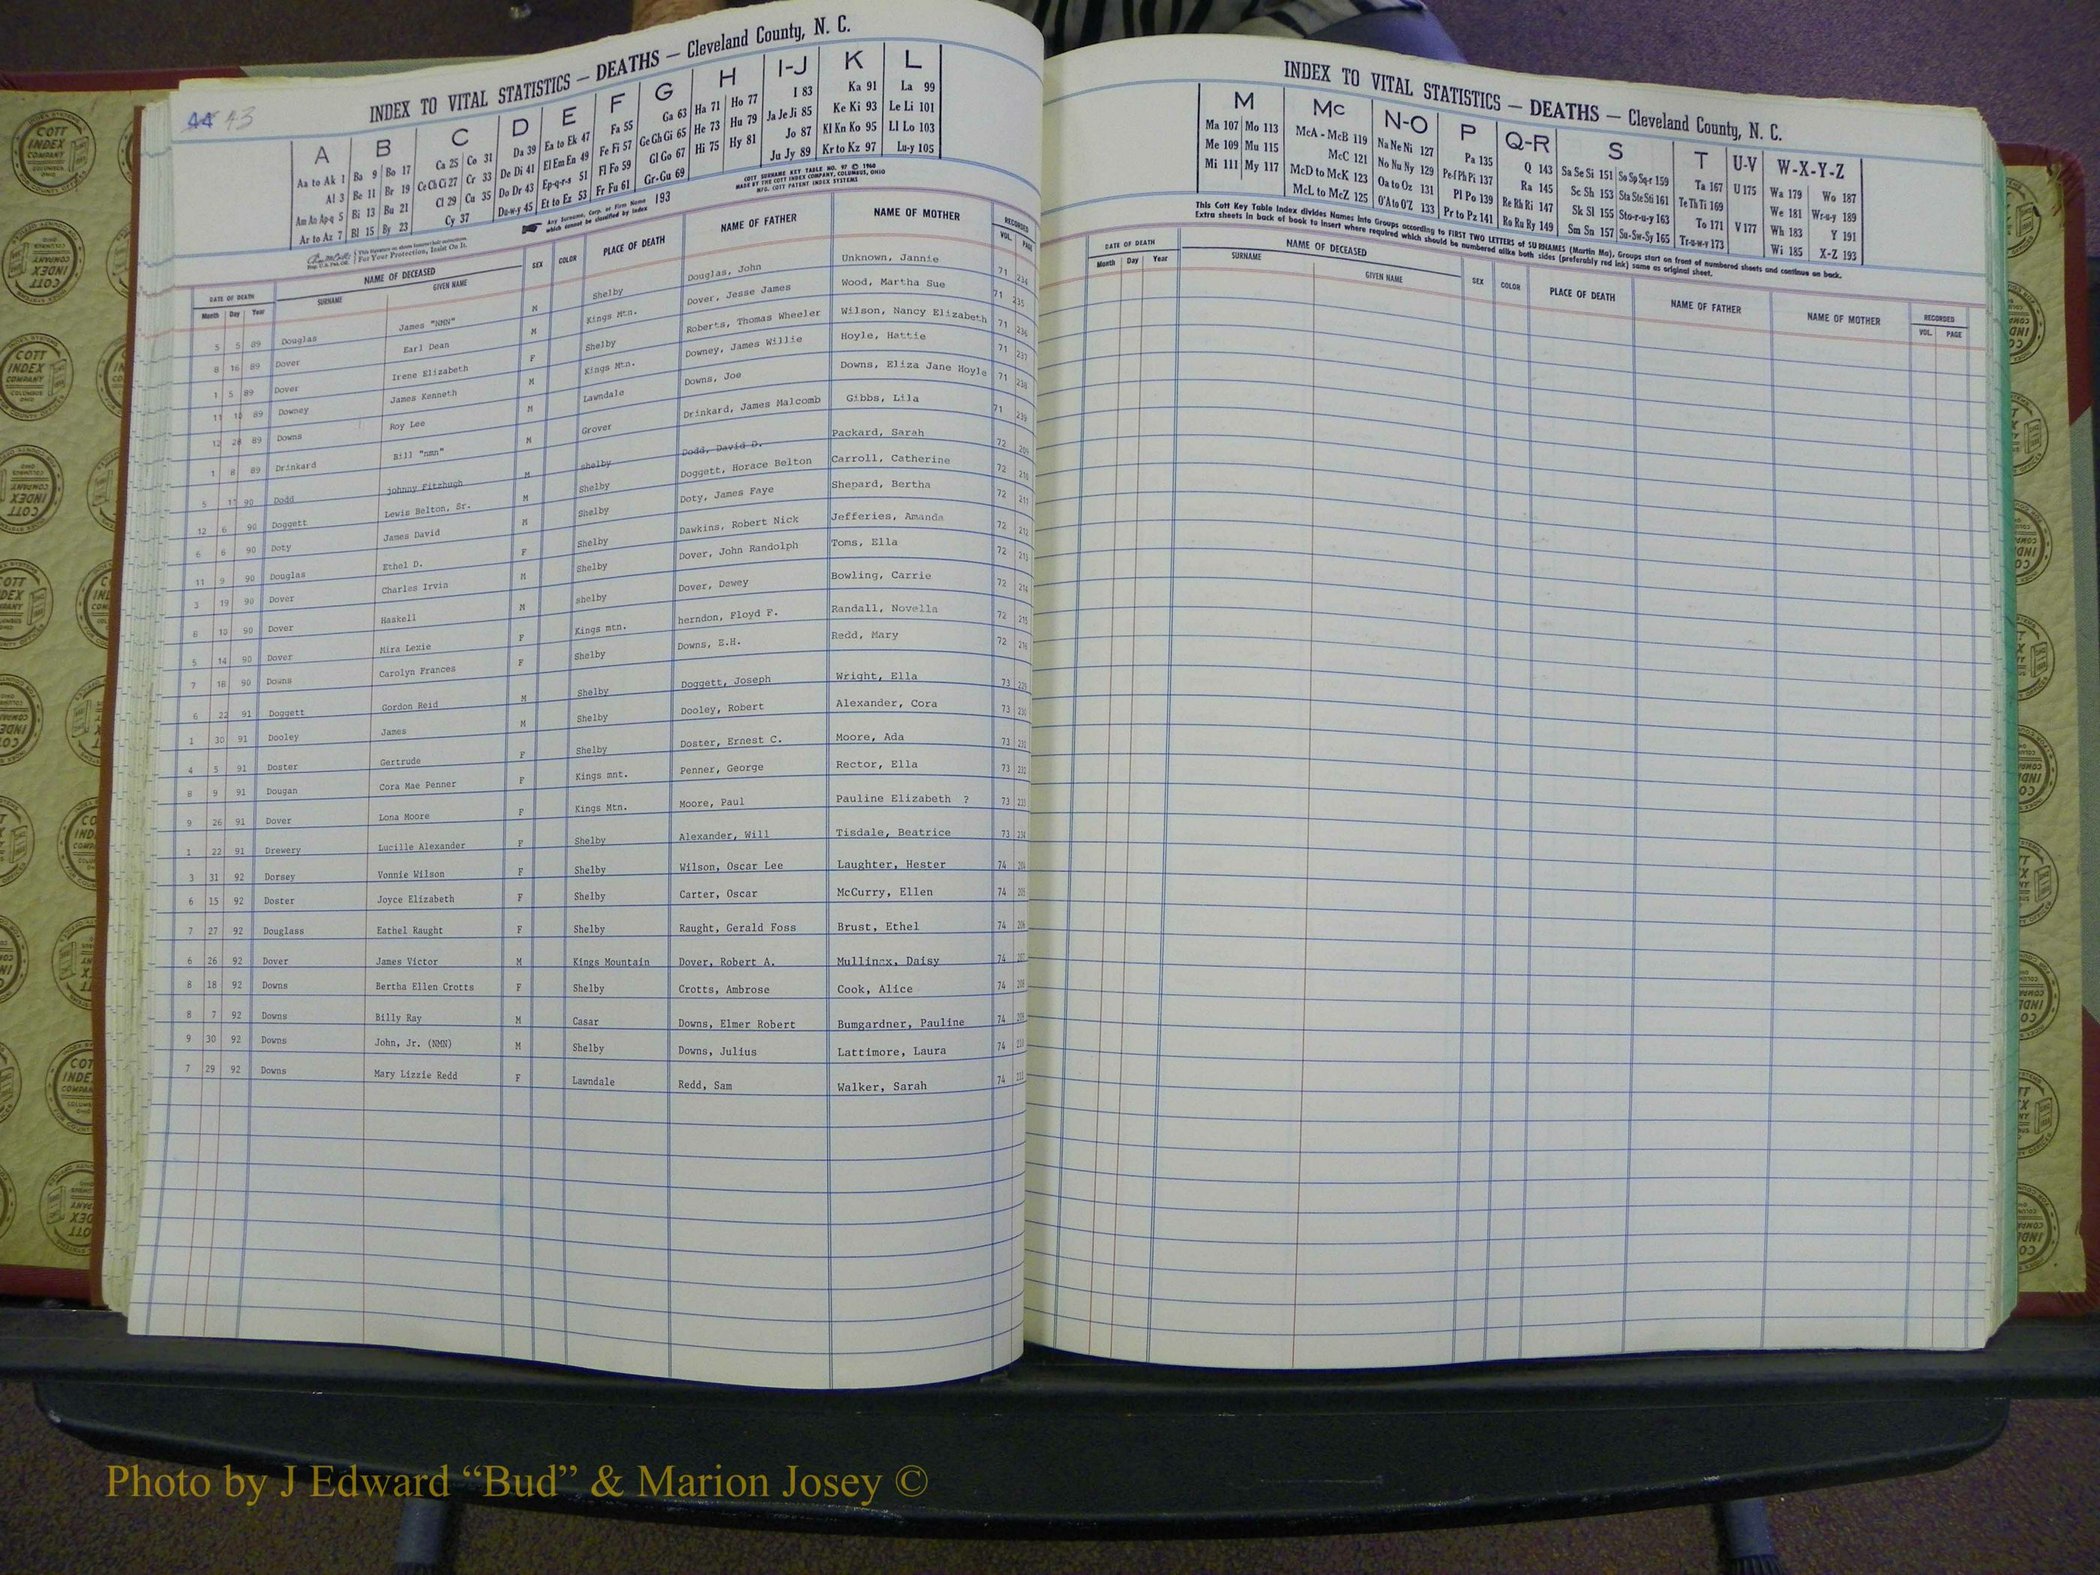 44 43
INDEX TO VITAL STATISTICS — DEATHS — Cleveland County, N. C.
A B C D E F G H I-J K L
Aa to Ak 1 Ba 9 Bo 17 Ca 25 Co 31 Da 39 Ea to Ek 47 Fa 55 Ga 63 Ha 71 Ho 77 I 83 Ka 91 La 99
Al 3 Be 11 Br 19 Ce Ch Ci 27 Cr 33 De Di 41 El Em En 49 Fe Fi 57 Ge Gh Gi 65 He 73 Hu 79 Ja Je Ji 85 Ke Ki 93 Le Li 101
Am An Ap-q 5 Bi 13 Bu 21 Cl 29 Cu 35 Do Dr 43 Ep-q-r-s 51 Fl Fo 59 Gl Go 67 Hi 75 Hy 81 Jo 87 Kl Kn Ko 95 Ll Lo 103
Ar to Az 7 Bl 15 By 23 Cy 37 Du-w-y 45 Et to Ez 53 Fr Fu 61 Gr-Gu 69 Ju Jy 89 Kr to Kz 97 Lu-y 105
COTT SURNAME KEY TABLE NO. 97 © 1960
MADE BY THE COTT INDEX COMPANY, COLUMBUS, OHIO
MFG. COTT PATENT INDEX SYSTEMS
Any Surname, Corp. or Firm Name which cannot be classified by Index 193
For Your Protection, Insist On It.
DATE OF DEATH NAME OF DECEASED SEX COLOR PLACE OF DEATH NAME OF FATHER NAME OF MOTHER RECORDED
Month Day Year SURNAME GIVEN NAME VOL. PAGE
5 5 89 Douglas James "NMN" M Shelby Douglas, John Unknown, Jannie 71 234
8 16 89 Dover Earl Dean M Kings Mtn. Dover, Jesse James Wood, Martha Sue 71 235
1 5 89 Dover Irene Elizabeth F Shelby Roberts, Thomas Wheeler Wilson, Nancy Elizabeth 71 236
11 10 89 Downey James Kenneth M Kings Mtn. Downey, James Willie Hoyle, Hattie 71 237
12 28 89 Downs Roy Lee M Lawndale Downs, Joe Downs, Eliza Jane Hoyle 71 238
1 8 89 Drinkard Bill "nmn" M Grover Drinkard, James Malcomb Gibbs, Lila 71 239
5 11 90 Dodd johnny Fitzhugh M shelby Dodd, David D. Packard, Sarah 72 209
12 6 90 Doggett Lewis Belton, Sr. M Shelby Doggett, Horace Belton Carroll, Catherine 72 210
6 6 90 Doty James David M Shelby Doty, James Faye Shepard, Bertha 72 211
11 9 90 Douglas Ethel D. F Shelby Dawkins, Robert Nick Jefferies, Amanda 72 212
3 19 90 Dover Charles Irvin M Shelby Dover, John Randolph Toms, Ella 72 213
8 10 90 Dover Haskell M shelby Dover, Dewey Bowling, Carrie 72 214
5 14 90 Dover Mira Lexie F Kings mtn. herndon, Floyd F. Randall, Novella 72 215
7 18 90 Downs Carolyn Frances F Shelby Downs, E.H. Redd, Mary 72 216
6 22 91 Doggett Gordon Reid M Shelby Doggett, Joseph Wright, Ella 73 229
1 30 91 Dooley James M Shelby Dooley, Robert Alexander, Cora 73 230
4 5 91 Doster Gertrude F Shelby Doster, Ernest C. Moore, Ada 73 231
8 9 91 Dougan Cora Mae Penner F Kings mnt. Penner, George Rector, Ella 73 232
9 26 91 Dover Lona Moore F Kings Mtn. Moore, Paul Pauline Elizabeth ? 73 233
1 22 91 Drewery Lucille Alexander F Shelby Alexander, Will Tisdale, Beatrice 73 234
3 31 92 Dorsey Vonnie Wilson F Shelby Wilson, Oscar Lee Laughter, Hester 74 204
6 15 92 Doster Joyce Elizabeth F Shelby Carter, Oscar McCurry, Ellen 74 205
7 27 92 Douglass Eathel Raught F Shelby Raught, Gerald Foss Brust, Ethel 74 206
6 26 92 Dover James Victor M Kings Mountain Dover, Robert A. Mullinax, Daisy 74 207
8 18 92 Downs Bertha Ellen Crotts F Shelby Crotts, Ambrose Cook, Alice 74 208
8 7 92 Downs Billy Ray M Casar Downs, Elmer Robert Bumgardner, Pauline 74 209
9 30 92 Downs John, Jr. (NMN) M Shelby Downs, Julius Lattimore, Laura 74 210
7 29 92 Downs Mary Lizzie Redd F Lawndale Redd, Sam Walker, Sarah 74 211
INDEX TO VITAL STATISTICS — DEATHS — Cleveland County, N. C.
M Mc N-O P Q-R S T U-V W-X-Y-Z
Ma 107 Mo 113 McA - McB 119 Na Ne Ni 127 Pa 135 Q 143 Sa Se Si 151 So Sp Sq-r 159 Ta 167 U 175 Wa 179 Wo 187
Me 109 Mu 115 McC 121 No Nu Ny 129 Pe-f Ph Pi 137 Ra 145 Sc Sh 153 Sta Ste Sti 161 Te Th Ti 169 V 177 We 181 Wr-u-y 189
Mi 111 My 117 McD to McK 123 Oa to Oz 131 Pl Po 139 Re Rh Ri 147 Sk Sl 155 Sto-r-u-y 163 To 171 Wh 183 Y 191
McL to McZ 125 O'A to O'Z 133 Pr to Pz 141 Ro Ru Ry 149 Sm Sn 157 Su-Sw-Sy 165 Tr-u-w-y 173 Wi 185 X-Z 193
This Cott Key Table Index divides Names into Groups according to FIRST TWO LETTERS of SURNAMES (Martin Ma), Groups start on front of numbered sheets and continue on back.
Extra sheets in back of book to insert where required which should be numbered alike both sides (preferably red ink) same as original sheet.
DATE OF DEATH NAME OF DECEASED SEX COLOR PLACE OF DEATH NAME OF FATHER NAME OF MOTHER RECORDED
Month Day Year SURNAME GIVEN NAME VOL. PAGE
COTT INDEX COMPANY COLUMBUS OHIO
Photo by J Edward “Bud” & Marion Josey ©